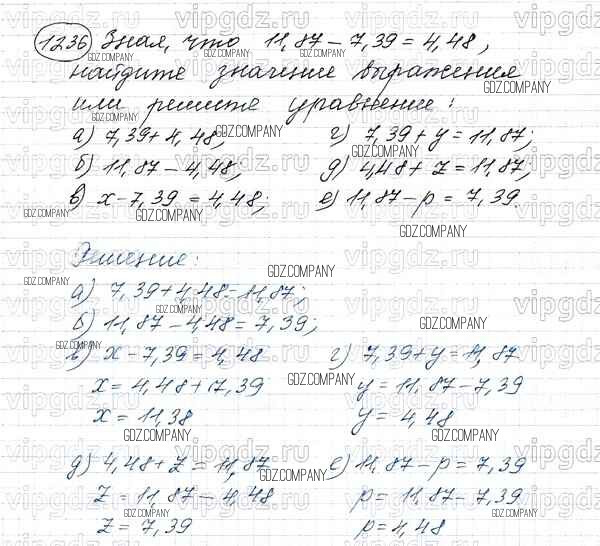 1236 Зная, что 11,87 - 7,39 = 4,48,
найдите значение выражения
или решите уравнение:
а) 7,39 + 4,48; г) 7,39 + y = 11,87;
б) 11,87 - 4,48; д) 4,48 + z = 11,87;
в) x - 7,39 = 4,48; е) 11,87 - p = 7,39.
Решение:
а) 7,39 + 4,48 = 11,87;
б) 11,87 - 4,48 = 7,39;
в) x - 7,39 = 4,48 г) 7,39 + y = 11,87
x = 4,48 + 7,39 y = 11,87 - 7,39
x = 11,38 y = 4,48
д) 4,48 + z = 11,87 е) 11,87 - p = 7,39
z = 11,87 - 4,48 p = 11,87 - 7,39
z = 7,39 p = 4,48
vipgdz.ru
GDZ.COMPANY